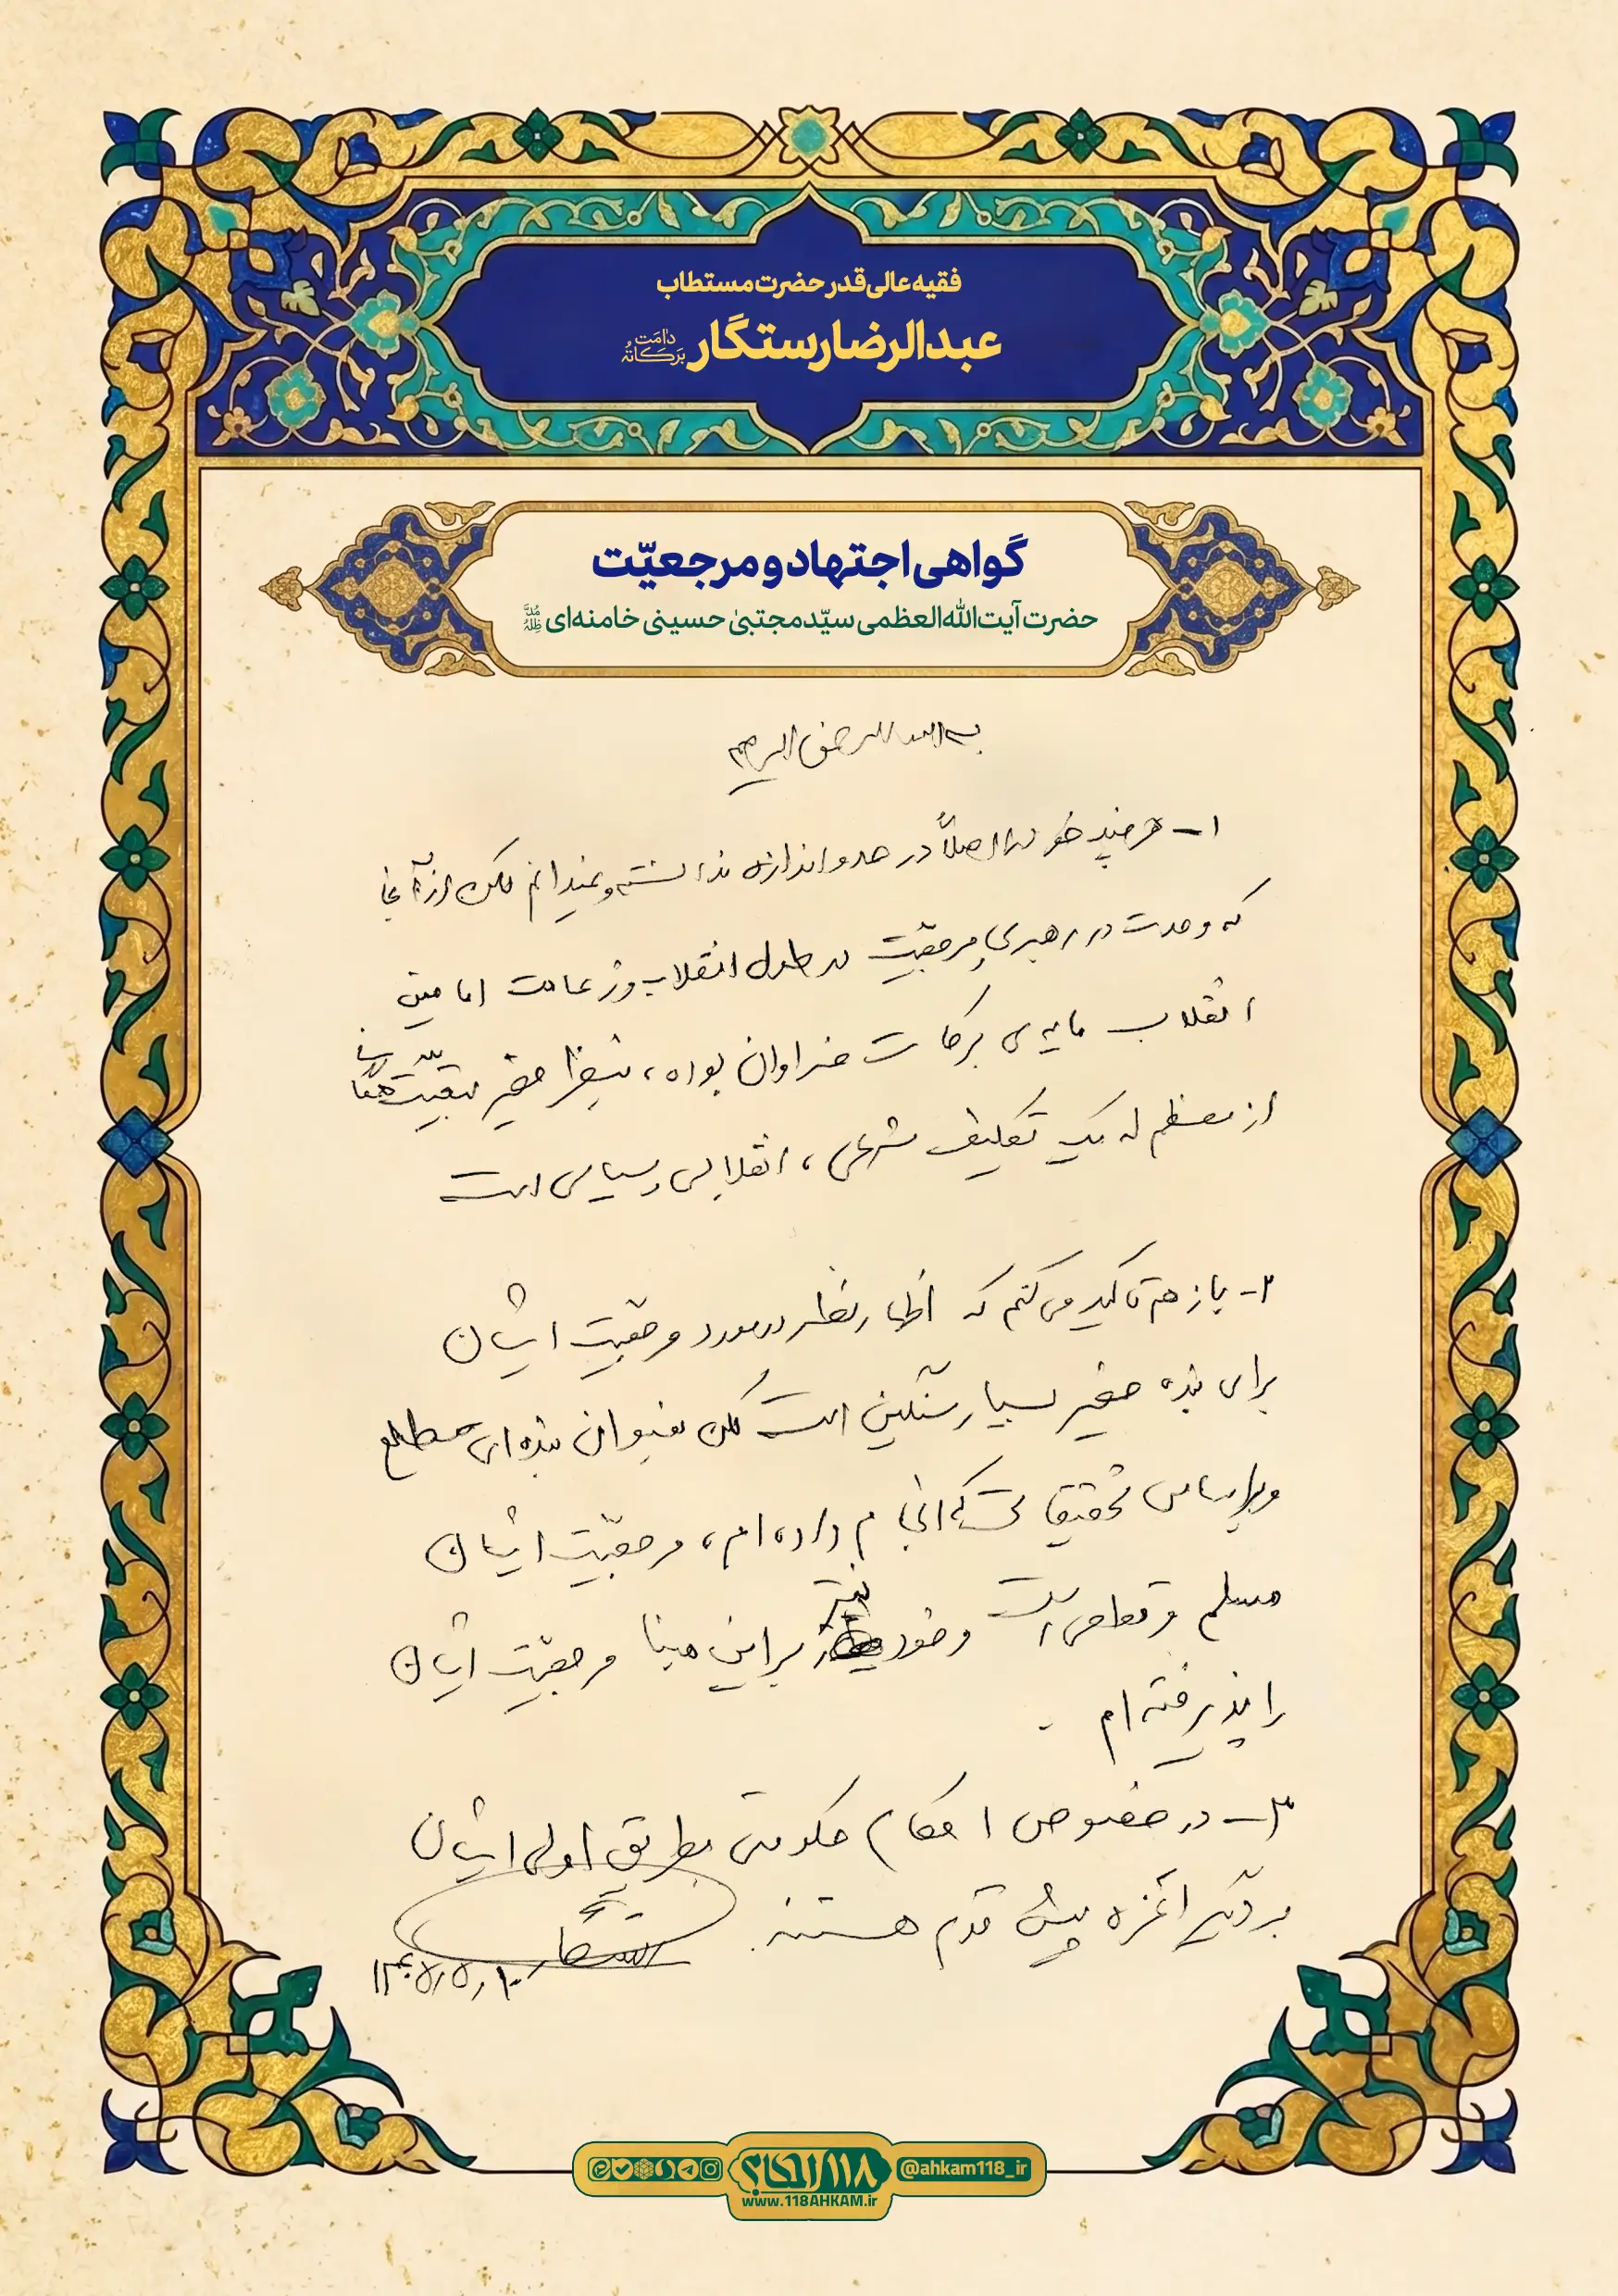 فقیه عالی‌قدر حضرت مستطاب
عبدالرضا رستگار دامَت بَرَکاتُهُ
گواهی اجتهاد و مرجعیّت
حضرت آیت‌الله‌العظمی سیّد مجتبیٰ حسینی خامنه‌ای مُدَّ ظِلُّهُ
بسم الله الرحمن الرحیم
۱- هرچند خود را اصلاً در حد و اندازه ندانسته و نمیدانم لکن از آنجا
که وحدت در رهبری و مرجعیّت در طول انقلاب و زعامت امامین
انقلاب مایه‌ی برکات فراوان بوده، بنظر حقیر تبعیّت
از معظم له یک تکلیف شرعی، انقلابی و سیاسی است
۲- باز هم تاکید می‌کنم که اظهار نظر در مورد مرجعیّت ایشان
برای بنده حقیر بسیار سنگین است لکن بعنوان بنده‌ای مطلع
و براساس تحقیقاتی که انجام داده‌ام، مرجعیّت ایشان
مسلم و قطعی است و خود نیز بر این مبنا مرجعیّت ایشان
را پذیرفته‌ام.
۳- در خصوص احکام حکومتی بطریق اولی ایشان
بر دیگر اعزه پیش قدم هستند.
رستگار
۱۴۰۵/۵/۱۰
@ahkam118_ir
۱۱۸ احکام
www.118AHKAM.ir